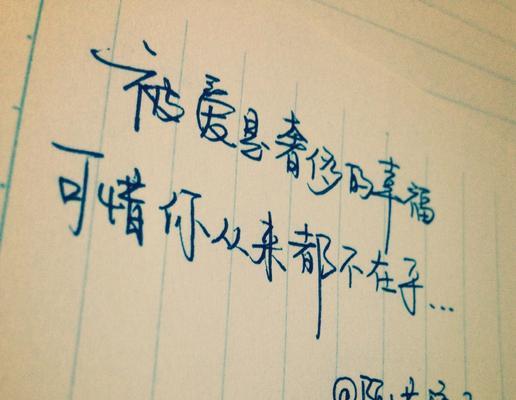 被爱是奢侈的幸福
可惜你从来都不在乎...
@陈